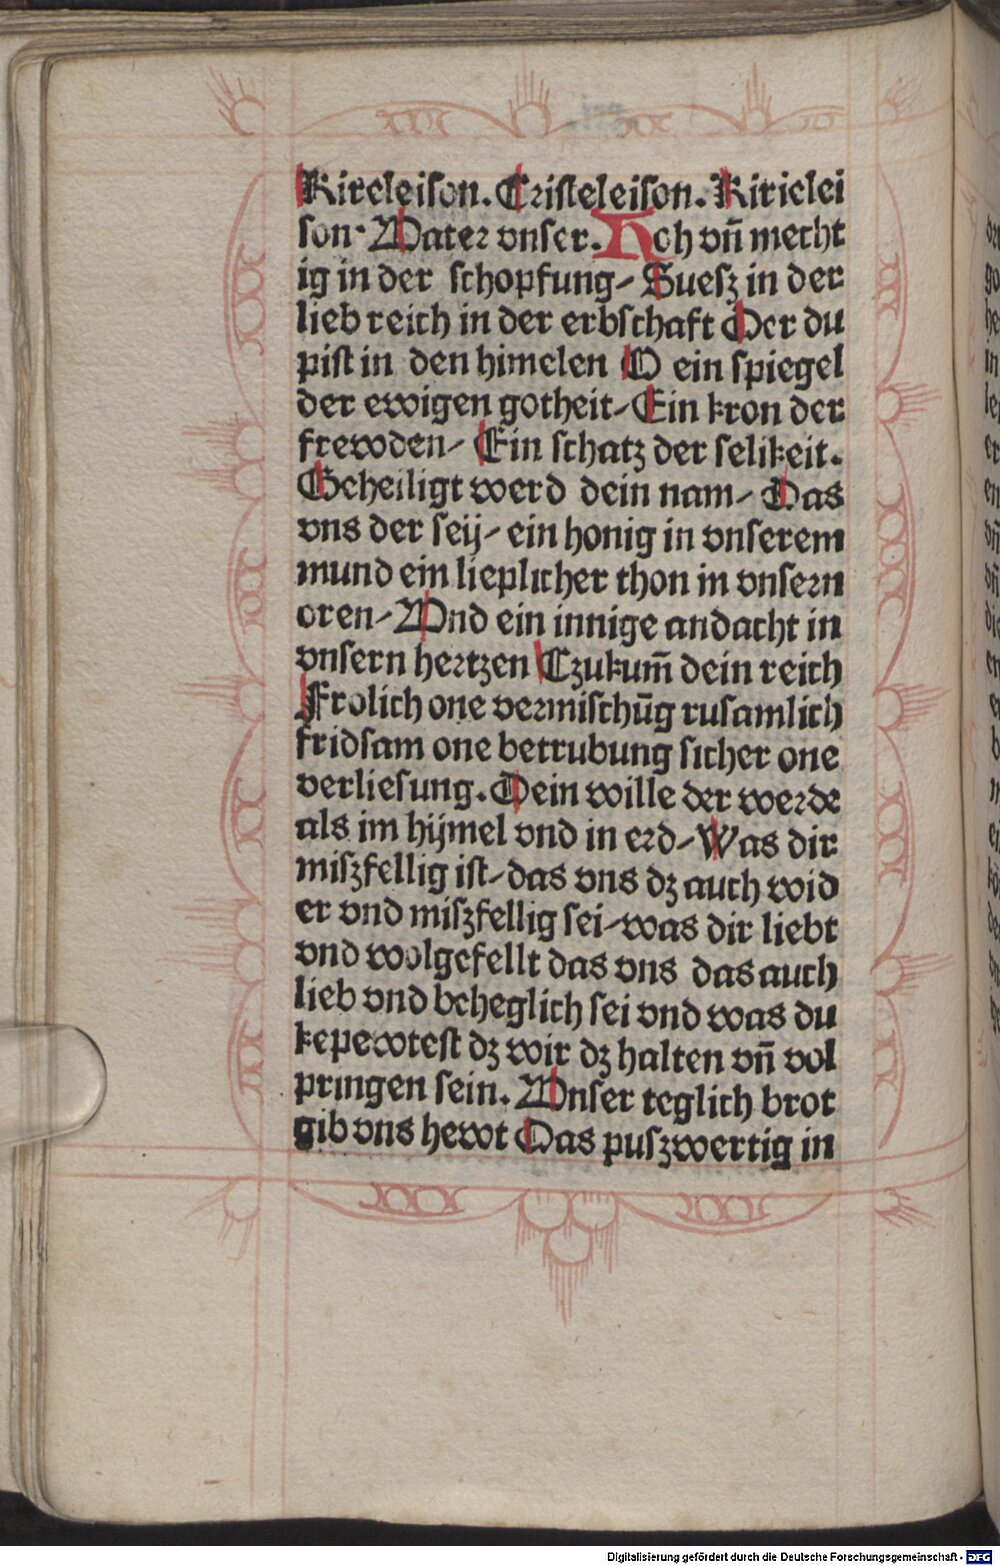 Kireleison. Cristeleison. Kirielei
son· Vater vnser. Hoh vn̄ mecht
ig in der schopfung⸗ Suesz in der
lieb reich in der erbschaft Der du
pist in den himelen O ein spiegel
der ewigen gotheit⸗ Ein kron der
frewden⸗ Ein schatz der selikeit.
Geheiligt werd dein nam⸗ Das
vns der seij⸗ ein honig in vnserem
mund ein lieplicher thon in vnsern
oren⸗ Vnd ein innige andacht in
vnsern hertzen Czukum̄ dein reich
Frolich one vermischūg rusamlich
fridsam one betrubung sicher one
verliesung. Dein wille der werde
als im hijmel vnd in erd⸗ Was dir
miszfellig ist⸗ das vns dz auch wid
er vnd miszfellig sei⸗ was dir liebt
vnd wolgefellt das vns das auch
lieb vnd beheglich sei vnd was du
kepewtest dz wir dz halten vn̄ vol
pringen sein. Vnser teglich brot
gib vns hewt Das puszwertig in
Digitalisierung gefördert durch die Deutsche Forschungsgemeinschaft - DFG